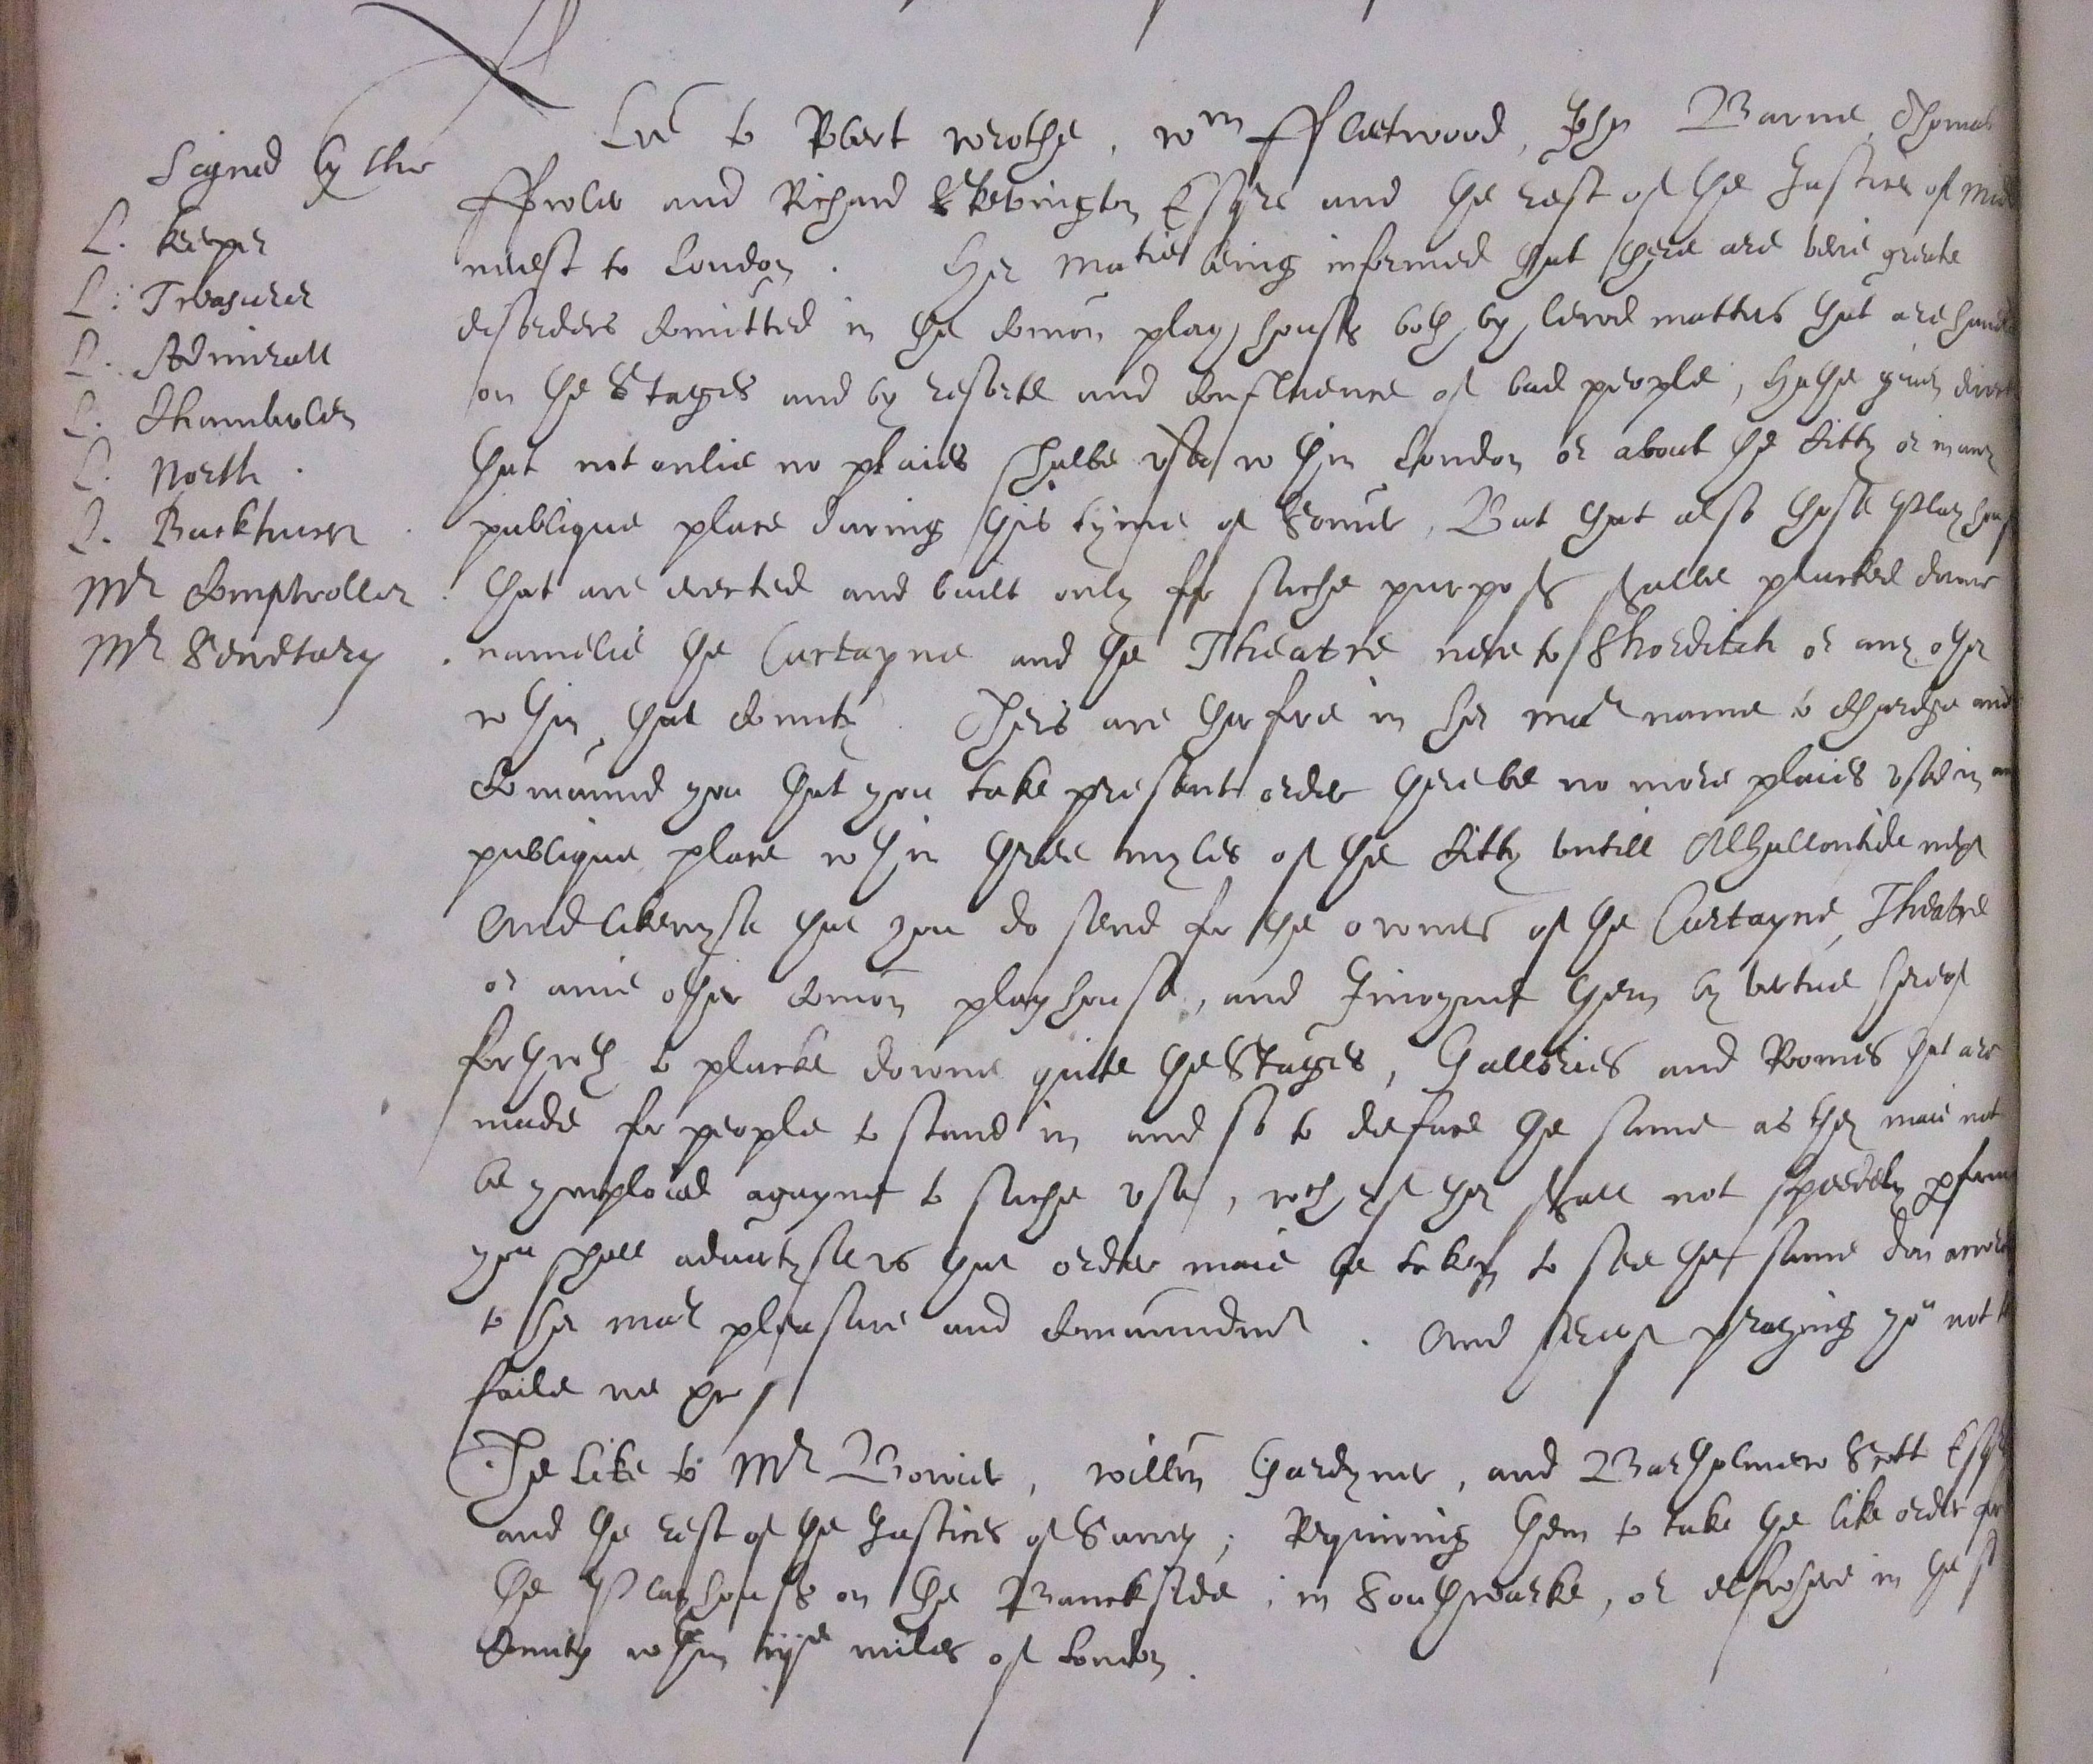 Signed by the
L. Keeper
L. Treasurer
L. Admirall
L. Chamberlen
L. North.
L. Buckhurst
Mr Comptroller
Mr Secretary
Lre to Robert Wrothe, Wm Ffleetwood, John Barne, Thomas
Ffowler and Richard Skevington Esqre and the rest of the Justices of Midd
nerest to London. Her Matie being informed that there are verie greate
disorders comitted in the comon playhouses both by lewd matters that are handl
on the Stages and by resorte and confluence of bad people, Hathe given direct
that not onlie no plaies shalbe used wthin London or about the Citty or in any
publique place during this tyme of Somer, But that also those Play houses
that are erected and built only for suche purposes shalbe plucked downe
namelie the Curtayne and the Theatre nere to Shorditch or any other
wthin that County. Theis are therfore in her mats name to chardge and
comaund you that you take present order there be no more plaies used in any
publique place wthin three myles of the Citty untill Alhallontide next
And likewyse that you do send for the owners of the Curtayne, Theatre
or anie other comon playhouse, and Injoyne them by vertue hereof
forthwth to plucke downe quite the Stages, Galleries and Roomes that are
made for people to stand in and so to deface the same as they maie not
be ymploied agayne to suche use, wch yf they shall not speedely pforme
you shall advertyse us that order maie be taken to see the same don accord
to her mats pleasure and comaundmt. And hereof praying yow not to
faile we &c.
The like to Mr Bowier, Willm Gardyner, and Bartholmew Scott Esqr
and the rest of the Justices of Surrey; Requiring them to take the like order for
the Playhouses on the Banckside, in Southwarke, or elswhere in the sd
County wthin iije miles of London.